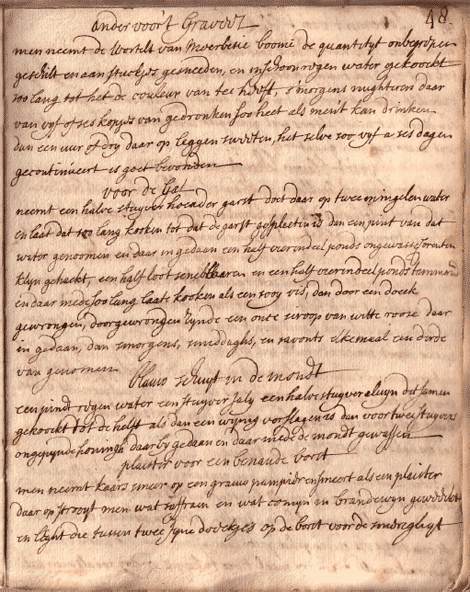 48.
ander voor't Graveel
men neemt de wortels van Moerbesie boomē de quantityt onbegrepen
geschilt en aan stuckjes gesneeden, en in schoon regen water gekoockt
soo lang tot het de couleur van tee heeft, s'morgens nughteren daar
van vyf of ses kopjes van gedronken soo heet als men't kan drinken
dan een uur of dry daar op leggen sweeten, het selve soo vyf a ses dagen
gecontinueert is goet bevonden
voor de
neemt een halve stuyver garst doet daar op twee mingelen water
en laat dat soo lang kooken tot dat de garst gespleeten is dan een pint van dat
water genoomen en daar in gedaan een half vierendeel ponds ongewasse Corenten
klyn gehackt, een half loot senebladeren en een half vierendeel ponds
en daar mede soo lang laate kooken als een zooy vis, dan door een doeck
gewrongen, doorgewrongen zynde een once siroop van witte roose daar
in gedaan, dan smorgens, smiddaghs, en savonts elkemaal een derde
van genomen
Blauw schuyt in de mondt
een pindt regen water een stuyver saly een halve stuyver aluyn dit samen
gekoockt tot de helft als dan een wynig verslagen is dan voor twee stuyvers
ongepynde honingh daar by gedaan en daar mede de mondt gewassen
plaister voor een benaude borst
men neemt kaars smeer op een grauw pampier ensmeert als een plaister
daar op stroyt men wat saffraan en wat comyn in brandewyn geweickt
en leght die tussen twee fyne doeckjes op de borst voor de